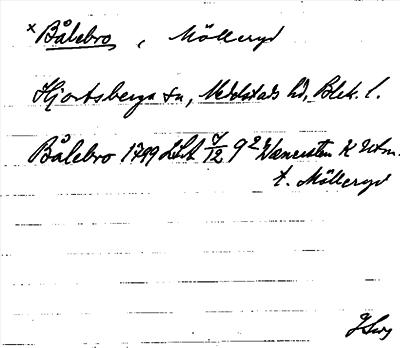 x Bålebro, Mölleryd
Hjortsberga sn, Medelstads hd, Blek. l.
Bålebro 1799 LSA 7/12 9² Wanersten K Utm.
t. Mölleryd